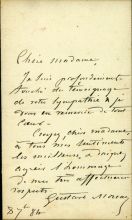 Chère madame,
Je suis profondément
touché du témoignage
de votre sympathie & je
vous en remercie de tout
cœur.
Croyez, chère madame,
à tous mes sentiments
les meilleurs, & daignez
agréer l'hommage
de mes très affectueux
respects
Gustave Moreau
84